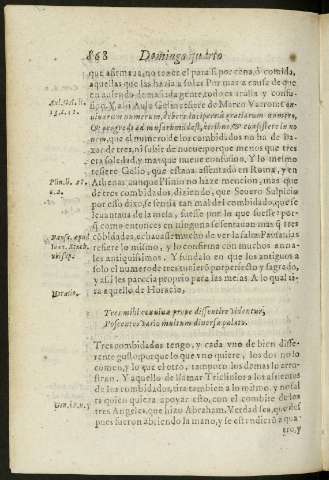 868 Domingo quarto
que afirmaua, no tener el para si por cena, ò comida,
aquellas que las hazia a solas Por mar a causa de que
en auiendo demasiada gente, todo es gralla y confu-
sion. Y assi Aulo Gelio refiere de Marco Varron: 
Aul. Gel. li.
13. c. 11.
numerum, debere incipere à gratiarum numero,
& progredi ad musarum: id est, à tribus, & consistere in no
uem, que el numero de los combidados no ha de ba-
xar de tres, ni subir de nueue: porque menos que tres
era soledad, y mas que nueue confusion. Y lo mesmo
refiere Gelio, que estaua assentado en Roma, y en
Plin. li. 28.
c. 2.
Athenas aunque Plinio no haze mencion, mas que
de tres combidados, diziendo, que Seuero Sulpicia
por esso dixo, se sentia tan mal del combidado, que se
leuantaua de la mesa, fuesse por lo que fuesse: por-
que como entonces en ninguna se sentauan mas que tres
cōbidados, echauase mucho de ver la falta. Pausanias
refiere lo mismo, y lo confirma con muchos anna-
les antiquissimos. Y fundalo en que los antiguos a
solo el numero de tres tuuierō por perfecto y sagrado,
y assi les parecia proprio para las mesas. A lo qual ti-
Horacio.
ra aquello de Horacio,
Tres mihi conuiuæ prope dissentire videntur,
Poscentes vario multum diuersa palato.
Tres combidados tengo, y cada vno de bien diffe-
rente gusto, porque lo que vno quiere, los dos no lo
comen, y lo que el otro, tampoco los demas lo arro-
stran. Y aquello de llamar Triclinios a los assientos
de los combidados, tira tambien a lo mismo, y no fal
ta quien quiera apoyar esto, con el combite de los
Gen. 18. n. 5
tres Angeles, que hizo Abraham. Verdad es, que des
pues fueron abriendo la mano, y se estendierō a qua-
tro, y